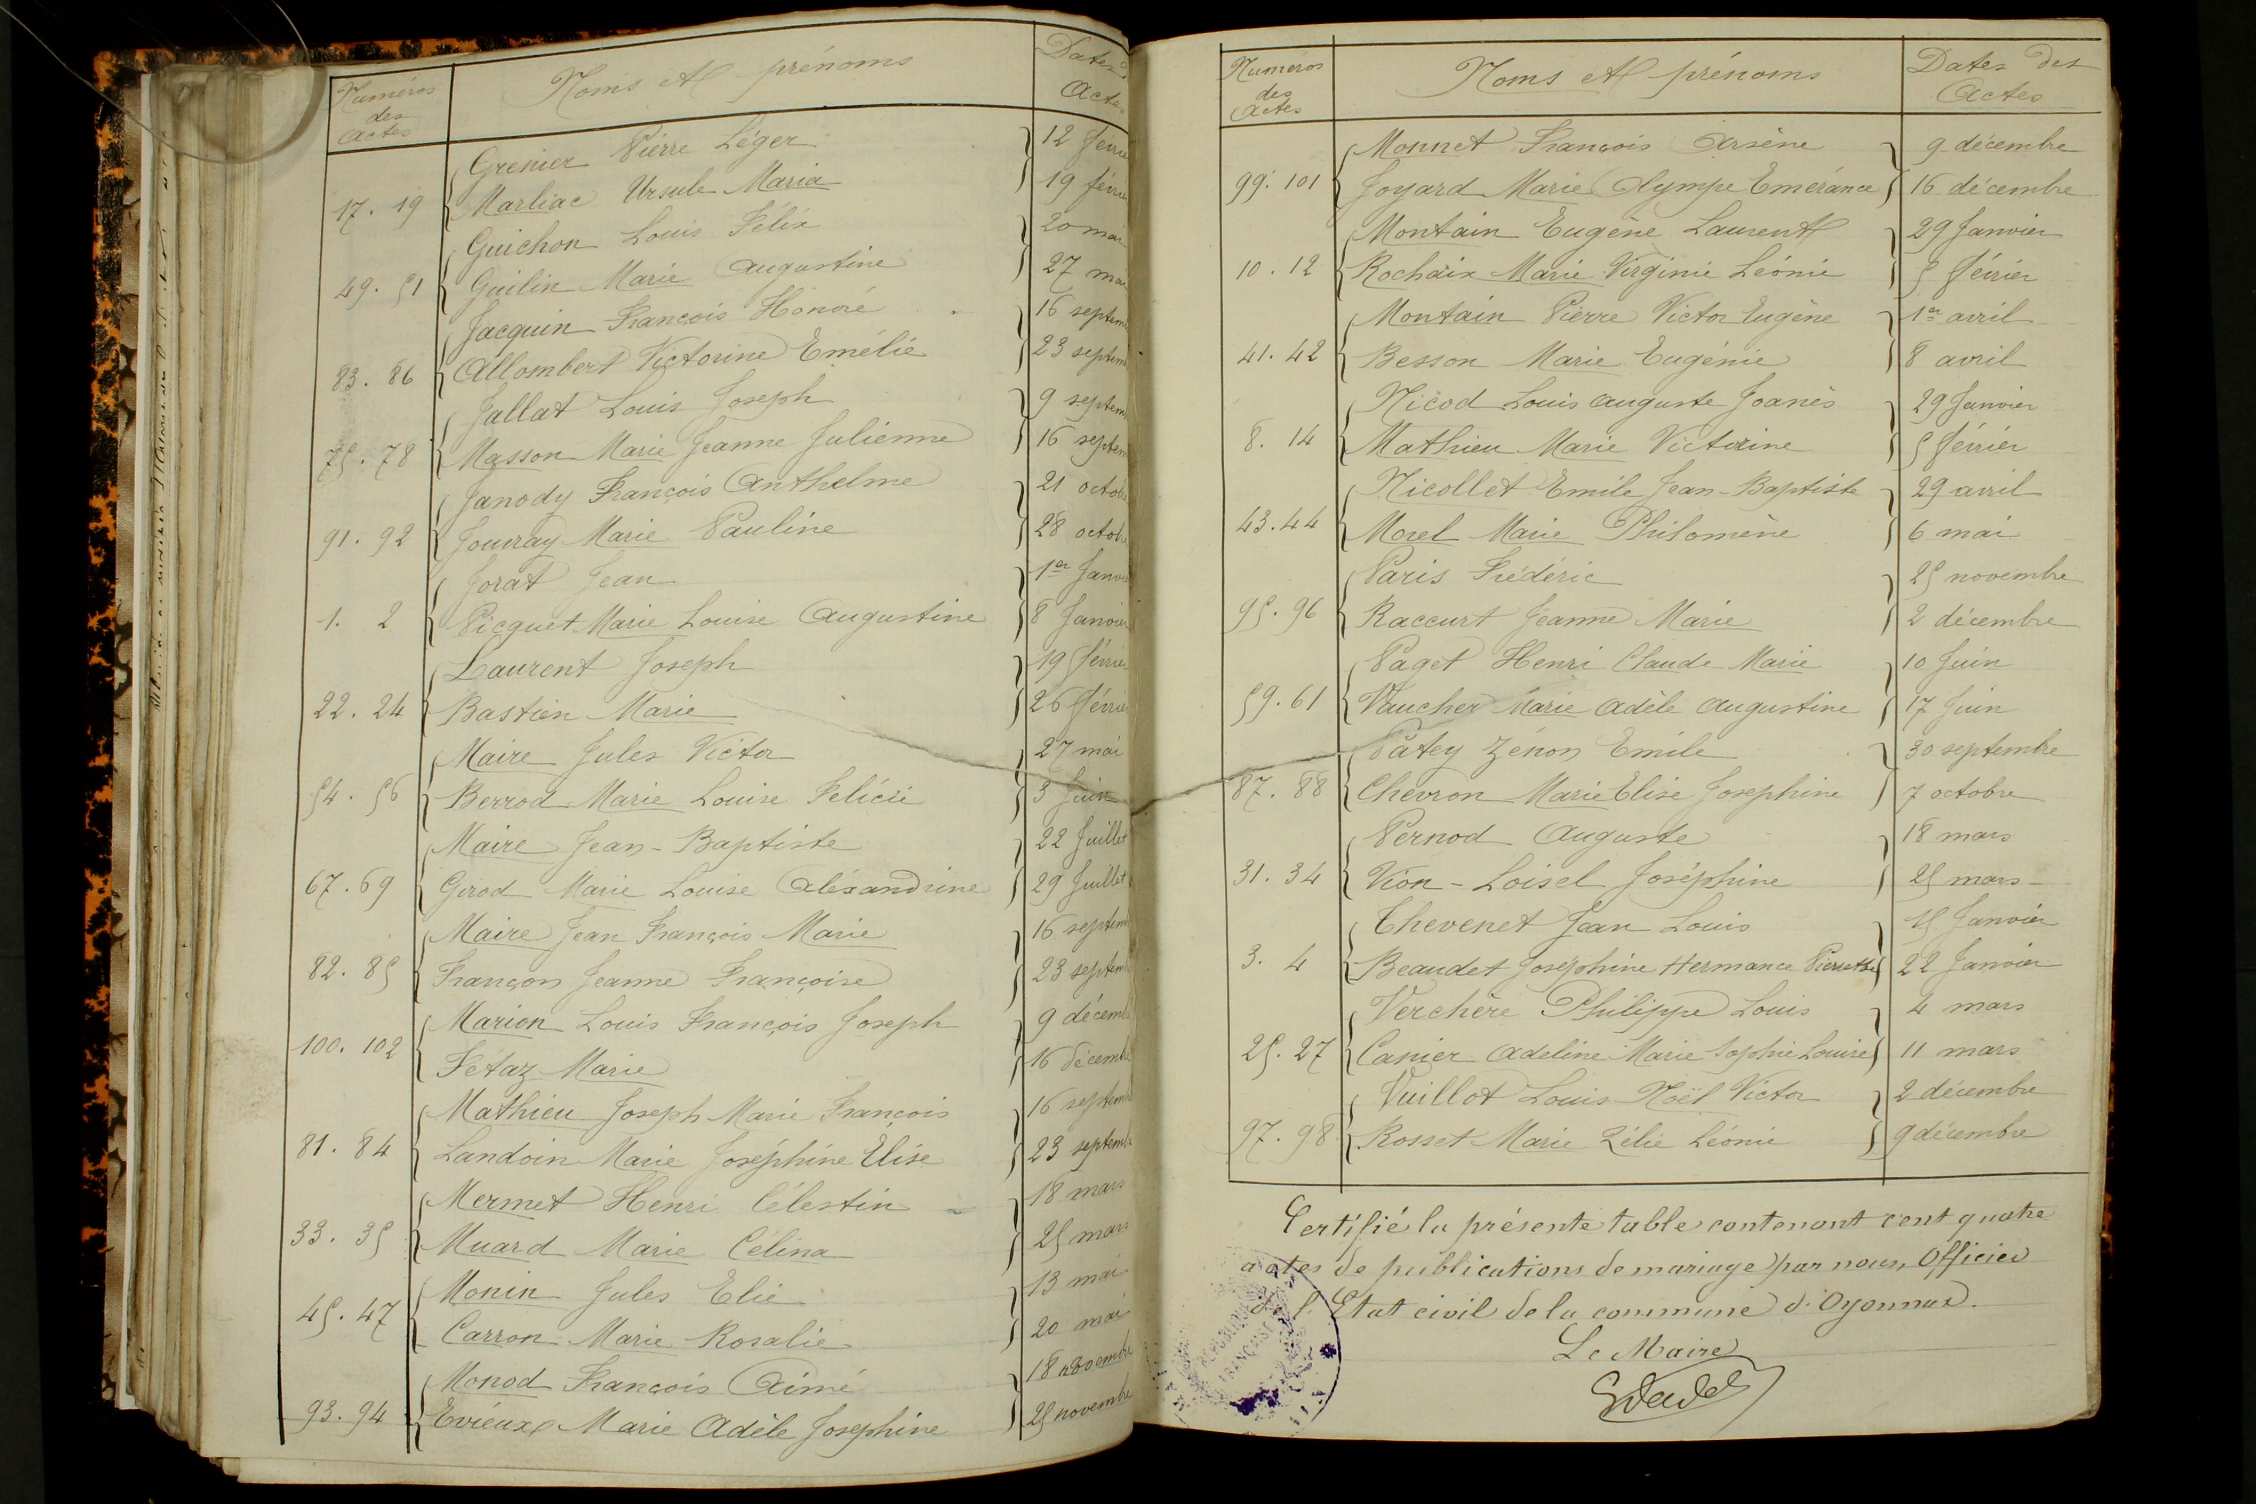 Numéros des Actes
Noms et prénoms
Dates
Actes
Grenier Pierre Léger 12 févrie
17. 19 Marliac Ursule Maria 19 févrie
Guichon Louis Félix 20 mai
49. 51 Guilin Marie Augustine 27 mai
Jacquin François Honoré 16 septem
83. 86 Allombert Victorine Emélie 23 septem
Jallat Louis Joseph 9 septem
75. 78 Masson Marie Jeanne Julienne 16 septem
Janody François Anthelme 21 octob
91. 92 Jouray Marie Pauline 28 octob
Jorat Jean 1er Janvie
1. 2 Picquet Marie Louise Augustine 8 Janvier
Laurent Joseph 19 févrie
22. 24 Bastien Marie 26 févrie
Maire Jules Victor 27 mai
54. 56 Berrod Marie Louise Félicie 3 Juin
Maire Jean-Baptiste 22 Juillet
67. 69 Girod Marie Louise Aléxandrine 29 Juillet
Maire Jean François Marie 16 septem
82. 85 Françon Jeanne Françoise 23 septemb
Marion Louis François Joseph 9 décemb
100. 102 Fétaz Marie 16 décemb
Mathieu Joseph Marie François 16 septemb
81. 84 Landoin Marie Joséphine Elise 23 septemb
Mermet Henri Célestin 18 mars
33. 35 Muard Marie Célina 25 mars
Monin Jules Elie 13 mai
45. 47 Carron Marie Rosalie 20 mai
Monod François Aimé 18 novembre
93. 94 Evrieux Marie Adèle Josephine 25 novembre
Numéros des Actes
Noms et prénoms
Dates des Actes
Monnet François Arsène 9 décembre
99. 101 Joyard Marie Olympe Emérance 16 décembre
Montain Eugène Laurent 29 Janvier
10. 12 Rochaix Marie Virginie Léonie 5 février
Montain Pierre Victor Eugène 1er avril
41. 42 Besson Marie Eugénie 8 avril
Nicod Louis Auguste Joanès 29 Janvier
8. 14 Mathieu Marie Victorine 5 février
Nicollet Emile Jean-Baptiste 29 avril
43. 44 Morel Marie Philomène 6 mai
Paris Frédéric 25 novembre
95. 96 Raccurt Jeanne Marie 2 décembre
Paget Henri Claude Marie 10 Juin
59. 61 Vaucher Marie Adèle Augustine 17 Juin
Patey Zénon Emile 30 septembre
87. 88 Chevron Marie Elise Josephine 7 octobre
Pernod Auguste 18 mars
31. 34 Vion-Loisel Joséphine 25 mars
Thevenet Jean Louis 15 Janvier
3. 4 Beaudet Joséphine Hermance Pierrette 22 Janvier
Verchère Philippe Louis 4 mars
25. 27 Canier Adeline Marie Sophie Louise 11 mars
Vuillot Louis Noël Victor 2 décembre
97. 98 Rosset Marie Zélie Léonie 9 décembre
Certifié la présente table contenant cent quatre
actes de publications de mariage par nous, Officier
de l'Etat civil de la commune d'Oyonnax.
Le Maire
REPUBLIQUE FRANÇAISE